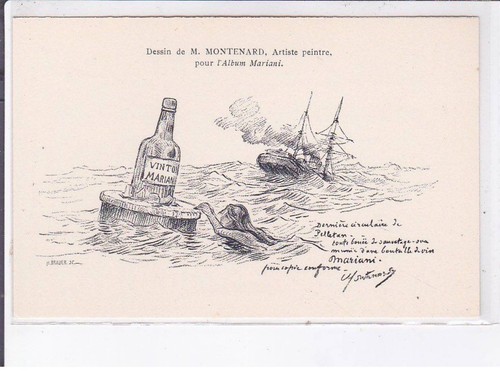 Dessin de M. MONTENARD, Artiste peintre,
pour l'Album Mariani.
VIN TON
MARIANI
Dernière circulaire de
Pelletan -
toute bouée de sauvetage sera
munie d'une bouteille de vin
Mariani -
pour copie conforme -
Montenard